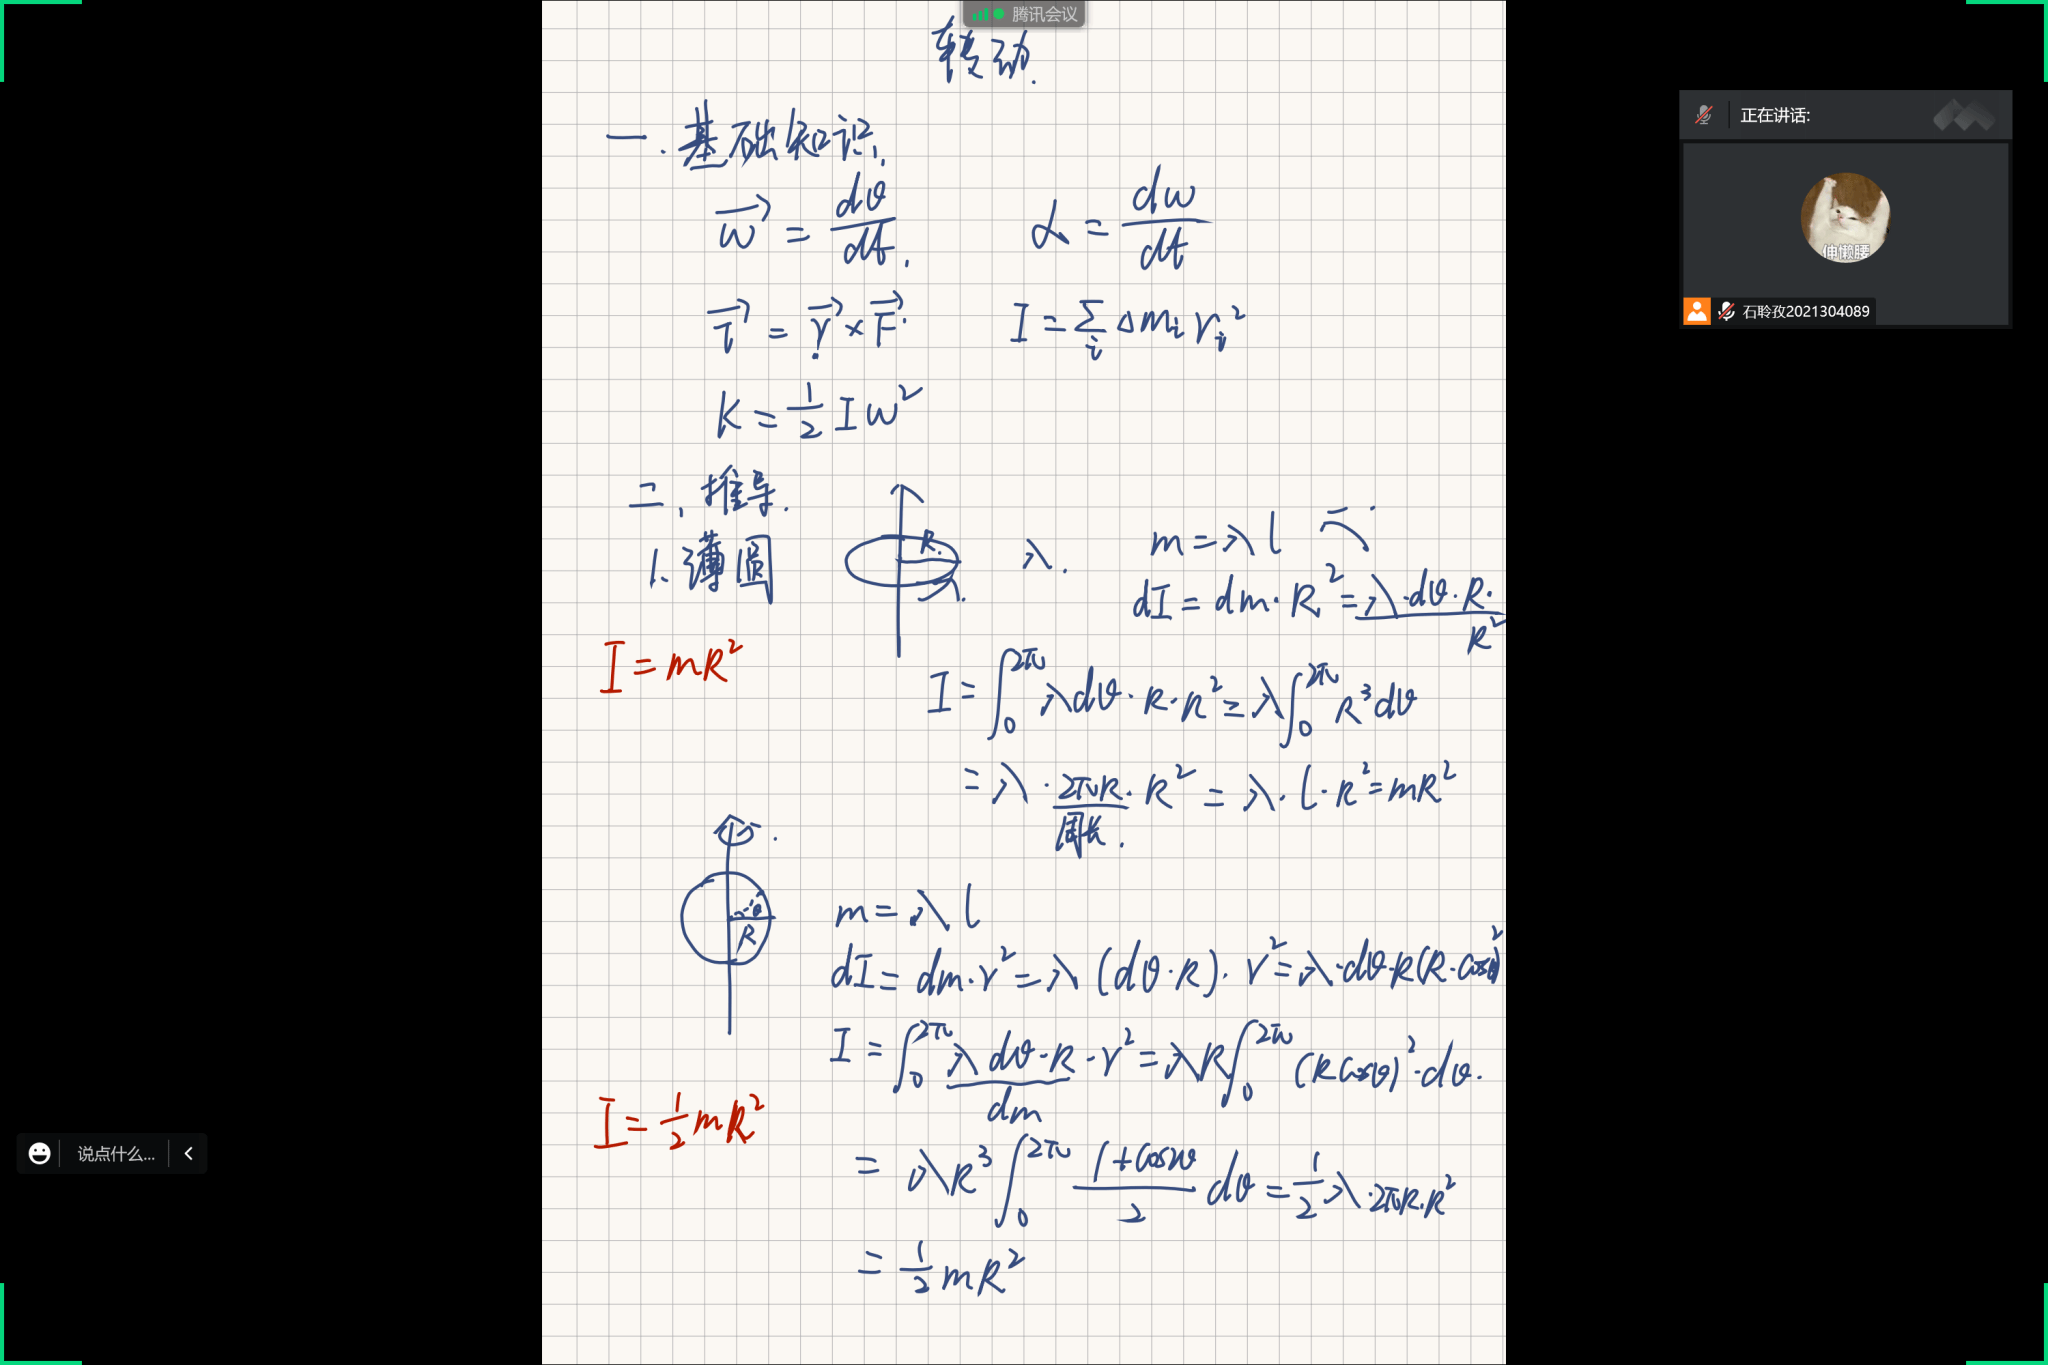 腾讯会议
转动.
一.基础知识.
→w = dθ/dt. α = dw/dt
→τ = →r × →F. I = Σi Δmi ri²
K = 1/2 I w²
二、推导.
1.薄圆
R.
λ.
m = λl
dI = dm·R² = λ·dθ·R·R²
I = mR²
I = ∫₀^2π λdθ·R·R² = λ∫₀^2π R³dθ
= λ·2πR·R² = λ·l·R² = mR²
周长.
θ
R
m = λl
dI = dm·r² = λ(dθ·R)·r² = λ·dθ·R(R·cosθ)²
I = ∫₀^2π λdθ·R·r² = λR∫₀^2π (Rcosθ)²·dθ.
dm
I = 1/2 mR²
= λR³∫₀^2π (1+cos2θ)/2 dθ = 1/2 λ·2πR·R²
= 1/2 mR²
正在讲话:
伸懒腰
石聆孜2021304089
说点什么...